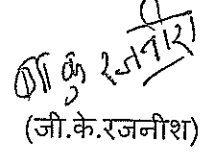 जी के रजनीश
(जी.के.रजनीश)